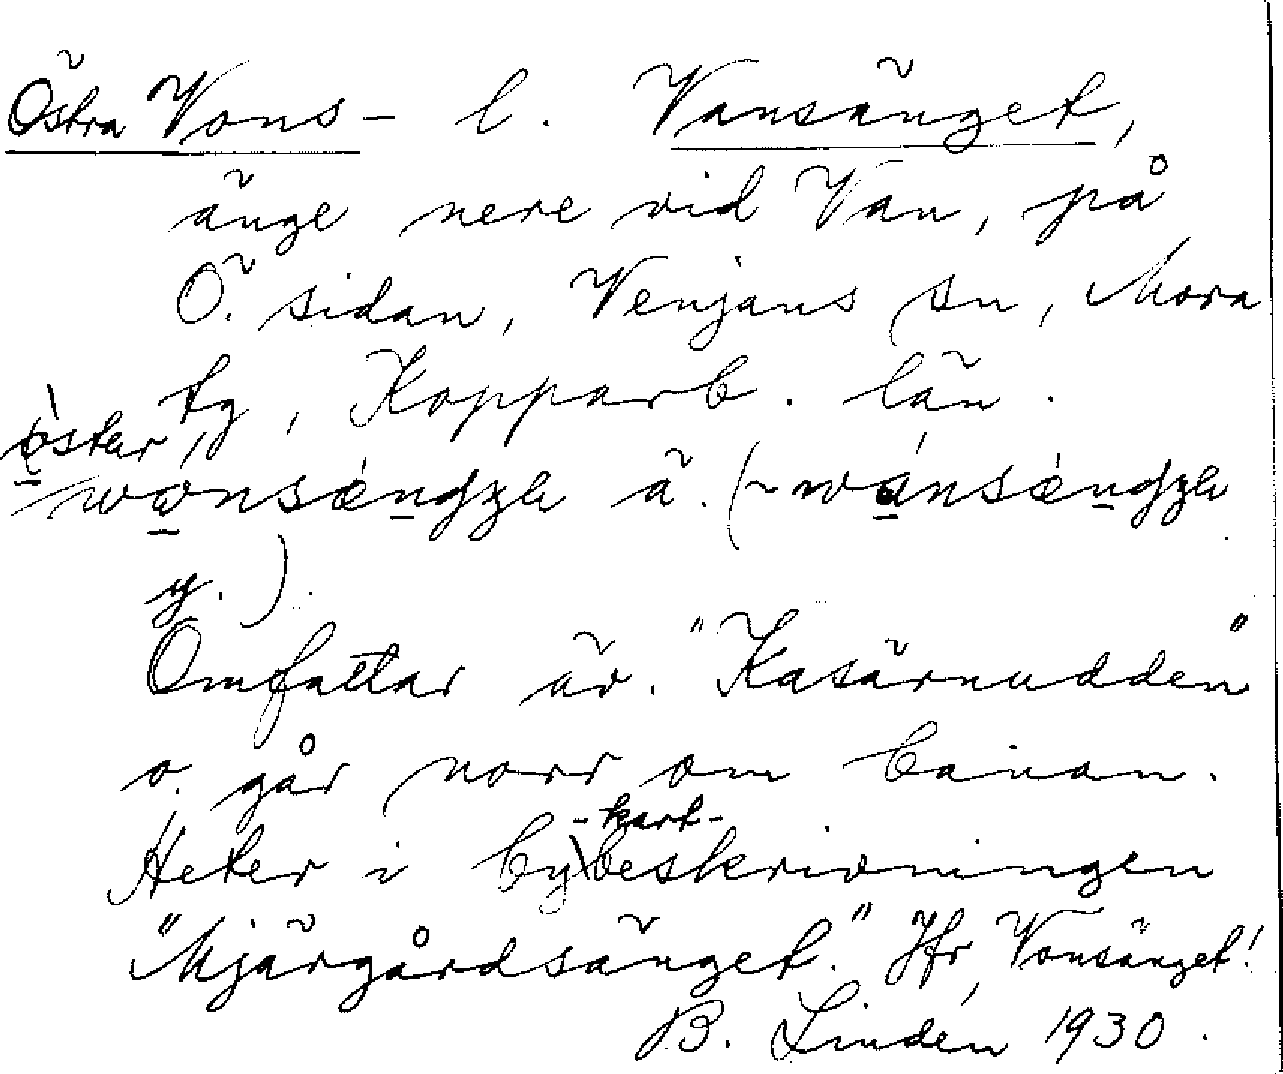 Östra Vons- l. Vansänget,
änge nere vid Van, på
Ö. sidan, Venjans sn, Mora
tg, Kopparb. län.
östär,
wωnsèŋgʒɐ ä. (~ wánsèŋgʒɐ
y.).
Omfattar äv. "Kasärnudden"
o. går norr om banan.
Heter i by-kart-beskrivningen
"Mjärgårdsänget." Jfr Vonsänget!
B. Lindén 1930.